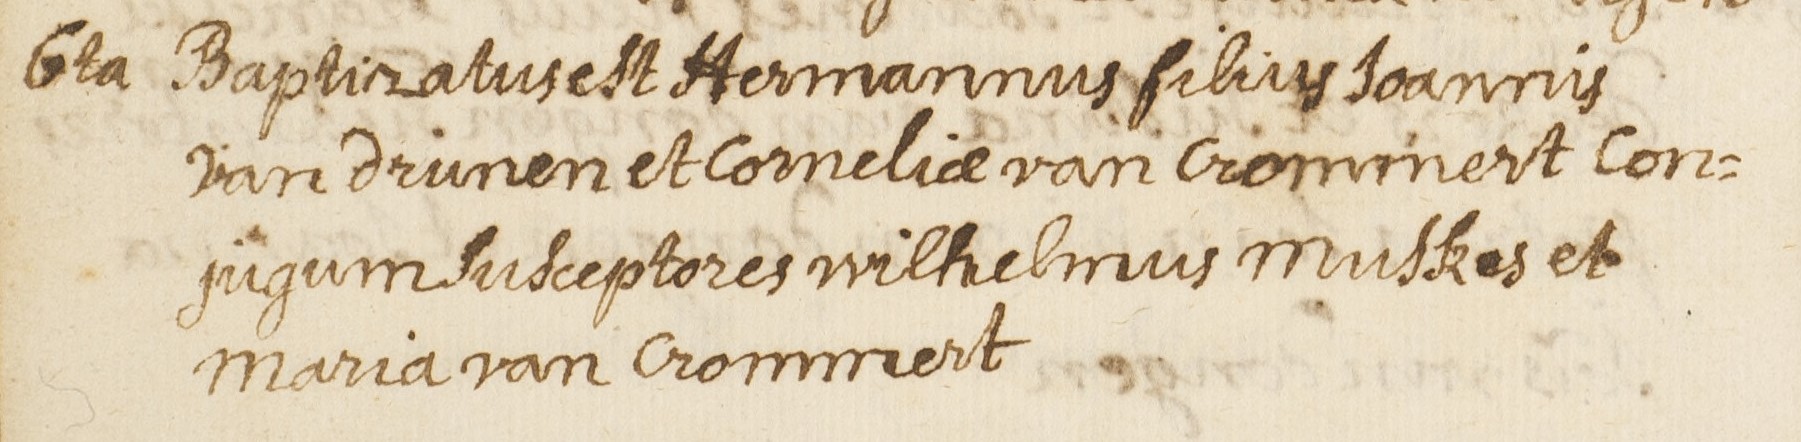 6ta Baptizatus est Hermannus filius Joannis
van drunen et Corneliæ van Crommert Con=
jugum Susceptores wilhelmus Muskes et
Maria van Crommert